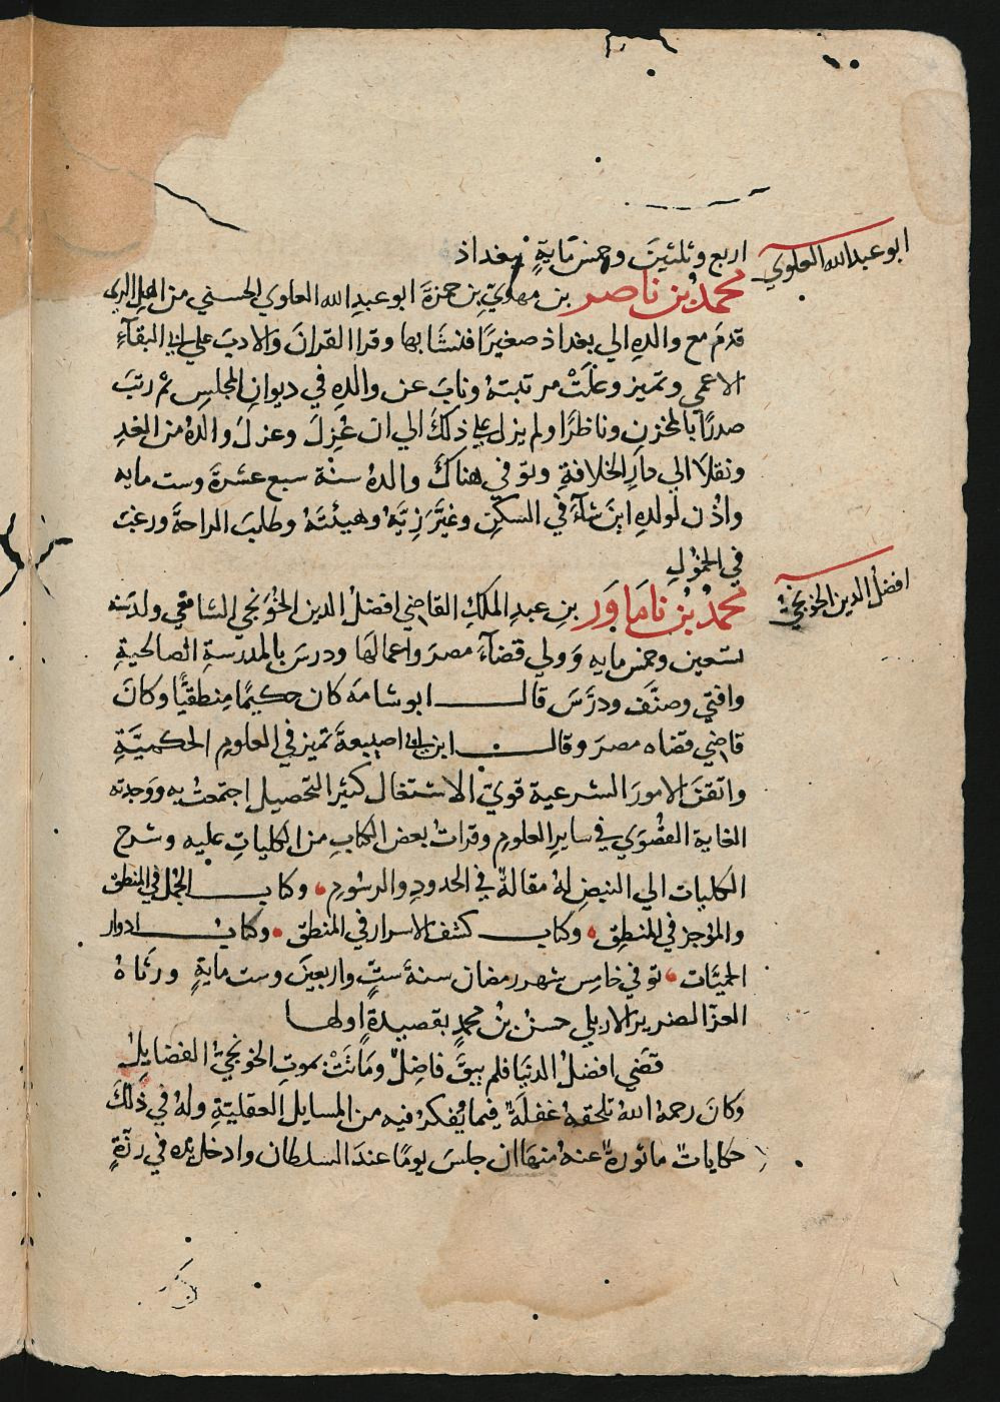 اربع وثلثين وخمس مايةٍ ببغداذ
ابو عبد الله العلوي
محمد بن ناصر بن مهدي بن حمزة ابو عبد الله العلوي الحسني من اهل الري
قدم مع والده الي بغداذ صغيرًا فنشا بها وقرا القران والادب علي ابي البقآء
الاعمي وتميز وعلت مرتبته وناب عن والده في ديوان المجلس ثم رتب
صدرًا بالمخزن وناظرًا ولم يزل علي ذلك الي ان عُزِل وعزل والده من الغد
ونقلا الي دار الخلافة وتوفي هناك والده سنة سبع عشرة وست مايه
واذن لولده اين شآء في السكن وغيَّر زيَّه وهيئته وطلب الراحة ورغب
في الخمول
افضل الدين الخونجي
محمد بن ناماور بن عبد الملك القاضي افضل الدين الخونجي الشافعي ولد سنه
تسعين وخمس مايه وولي قضآء مصر واعمالها ودرس بالمدرسة الصالحية
وافتي وصنَّف ودرَّس قال ابو شامه كان حكيمًا منطقيًّا وكان
قاضي قضاه مصر وقال ابن ابي اصيبعة تميز في العلوم الحكميَّةِ
واتقن الامور الشرعية قوي الاشتغال كثير التحصيل اجتمعت به ووجدته
الغاية القصوي في ساير العلوم وقرات بعض الكتاب من الكليات عليه وشرح
الكليات الي النبض له مقالة في الحدود والرسوم، وكتاب الجمل في المنطق
والموجز في المنطق، وكتاب كشف الاسرار في المنطق، وكتاب ادوار
الحميَّات، توفي في خامس شهر رمضان سنة ستٍّ واربعين وست مايةٍ ورثاه
العز الضرير الاربلي حسن بن محمد بقصيدة اولها
قضي افضل الدنيا فلم يبق فاضلٌ وماتت بموت الخونجي الفضايل
وكان رحمه الله تلحقه غفلة فيما يفكر فيه من المسايل العقلية وله في ذلك
حكايات ماثورة عنه منها ان جلس يومًا عند السلطان وادخل يده في رزّةٍ